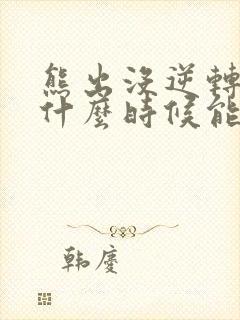 熊出沒逆轉
什麼時候能
韩慶